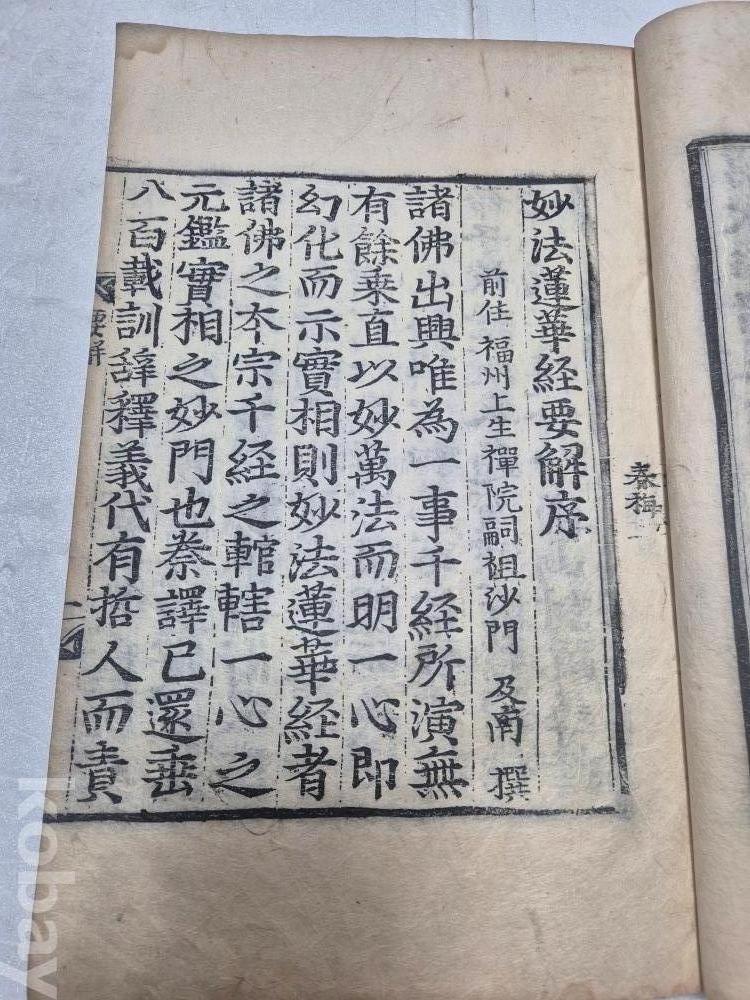 妙法蓮華経要解序
前住福州上生禪院嗣祖沙門 及南 撰
諸佛出興唯為一事千経所演無
有餘乗直以妙萬法而明一心即
幻化而示實相則妙法蓮華経者
諸佛之夲宗千経之輨轄一心之
元鑑實相之妙門也㮏譯已還垂
八百載訓辞釋義代有哲人而責
要解
春梅
kobay